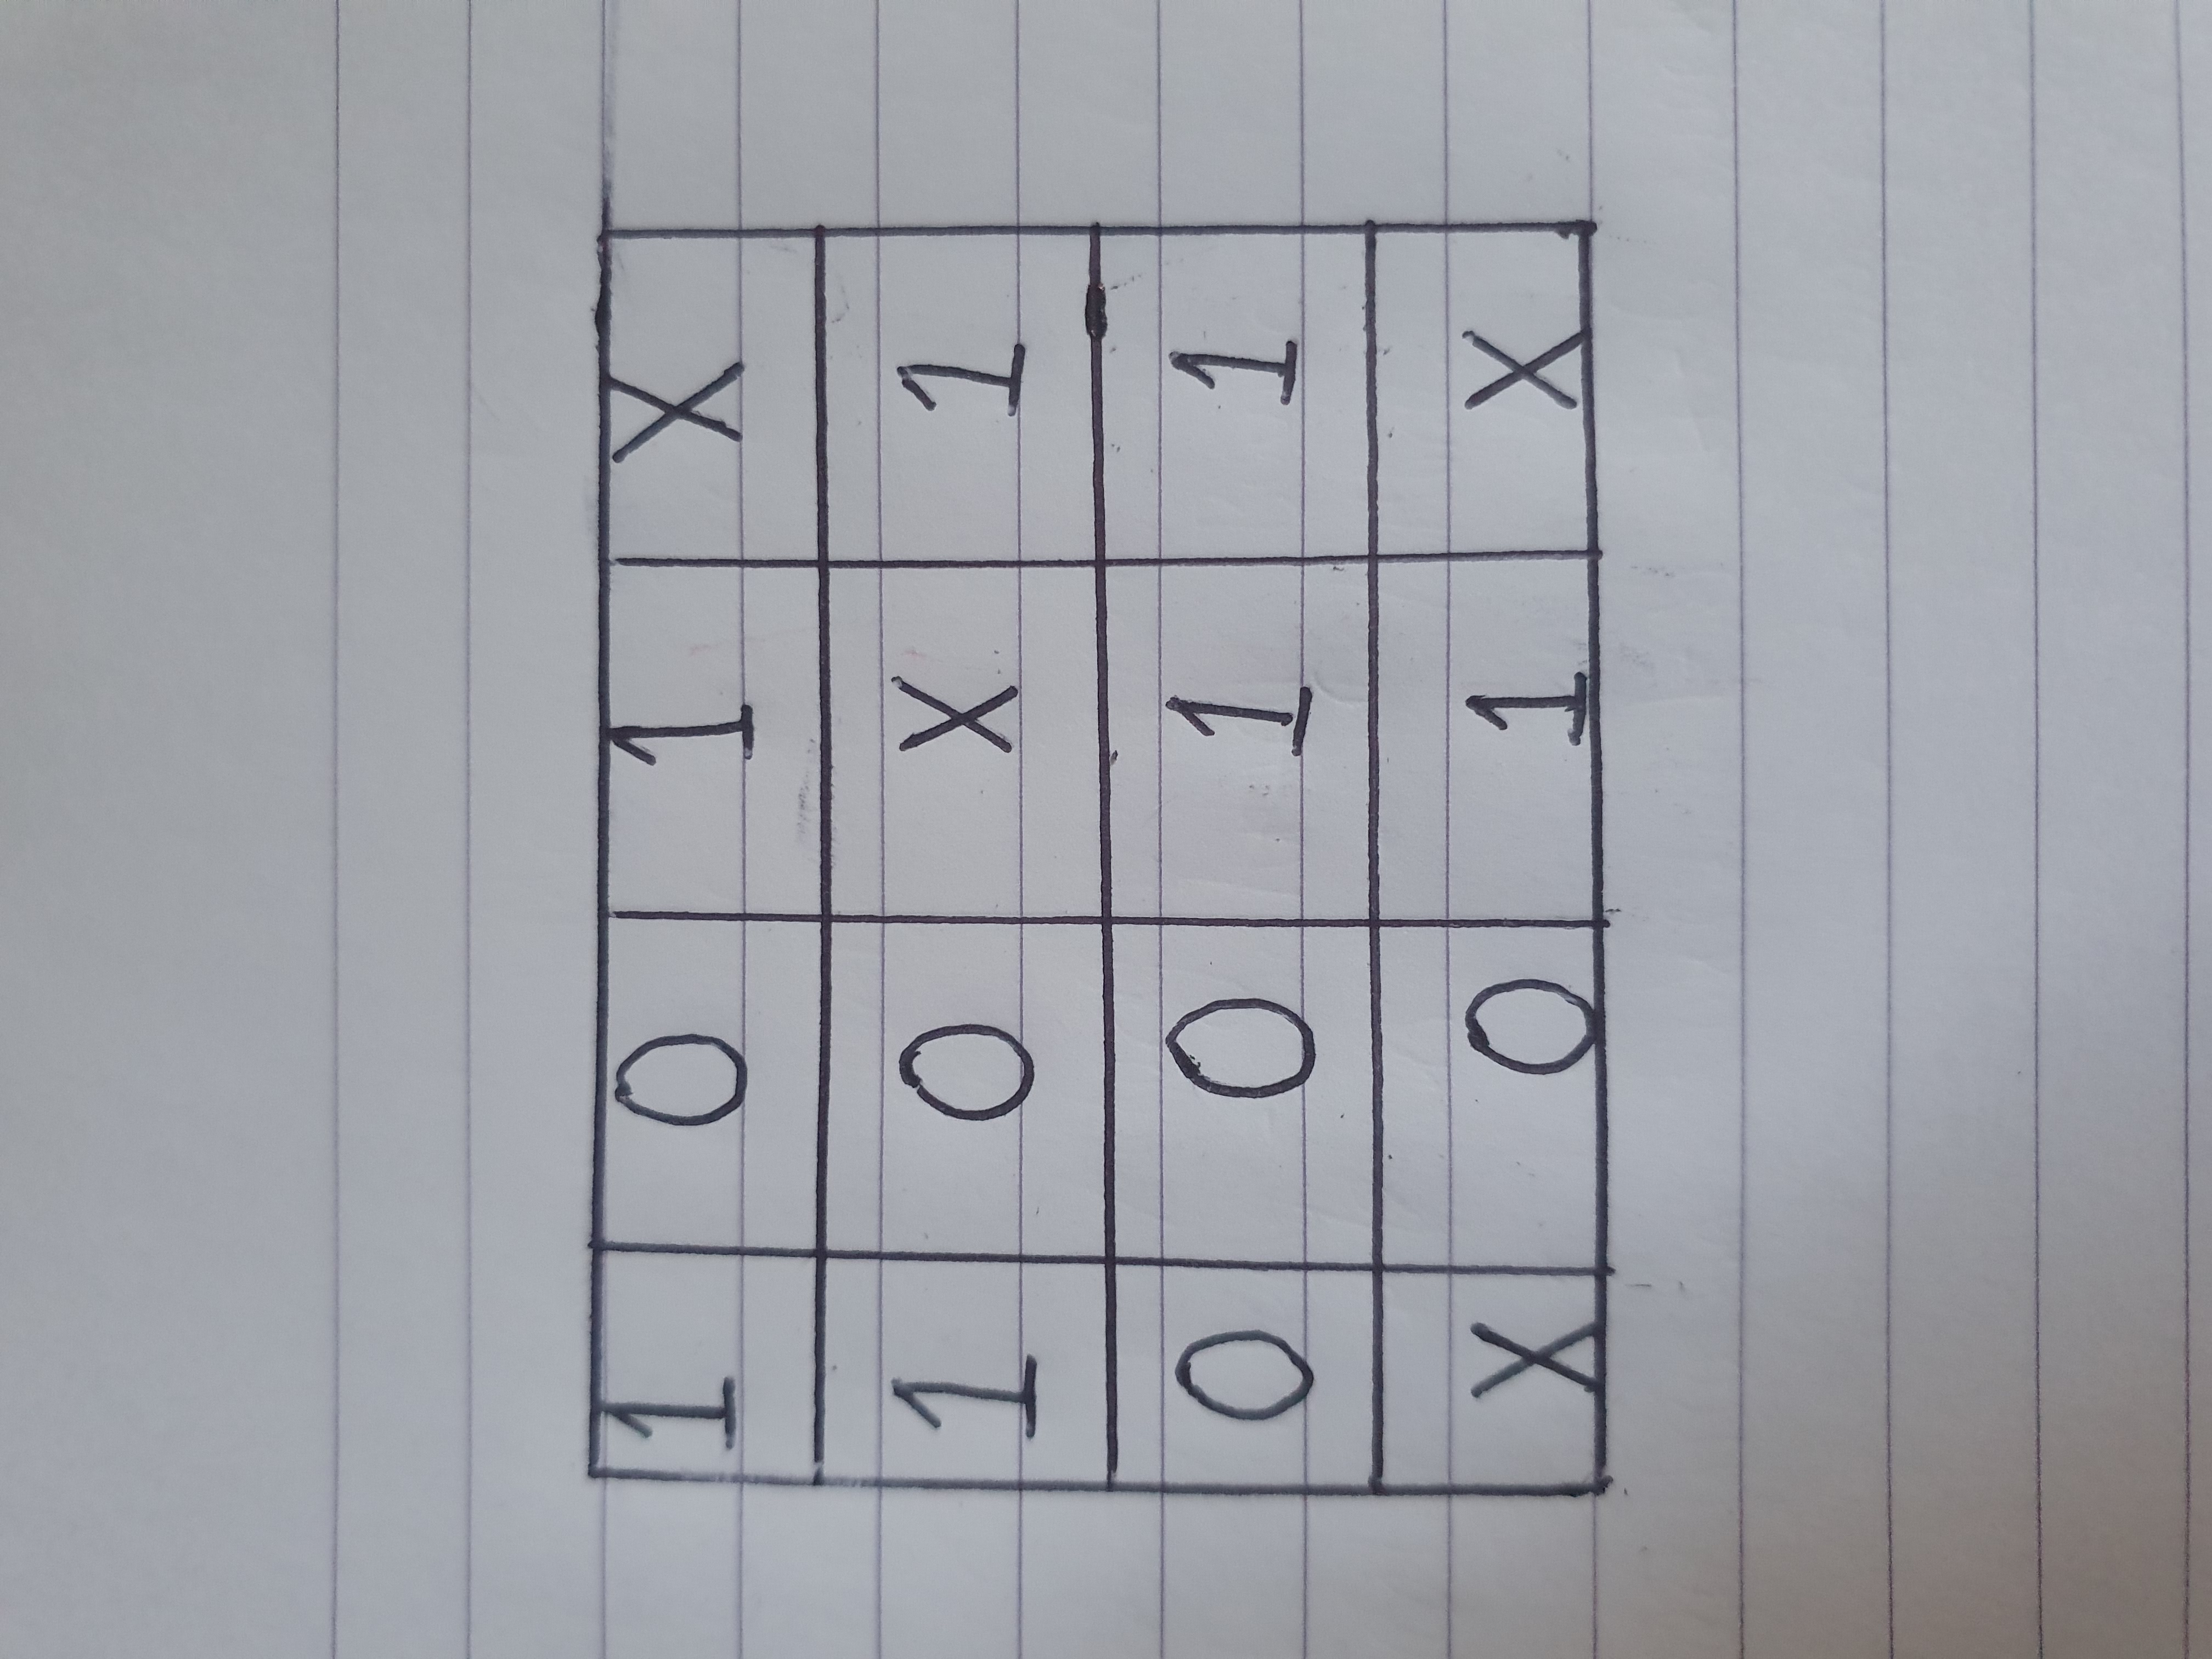 1 0 1 X
1 0 X 1
0 0 1 1
X 0 1 X